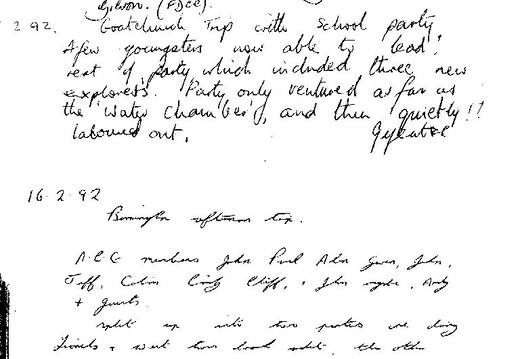 (FDCC).
2.92. Goatchurch Trip with School party
A few youngsters now able to lead!
rest of party which included three new
explorers. Party only ventured as far as
the 'Water Chamber', and then quietly!!
laboured out.
16.2.92
afternoon trip.
members John Paul Alan Gwen, John,
Jeff, Colin Cindy Cliff, + John, Andy
+ guests.
split up into two parties one doing
+ went the other